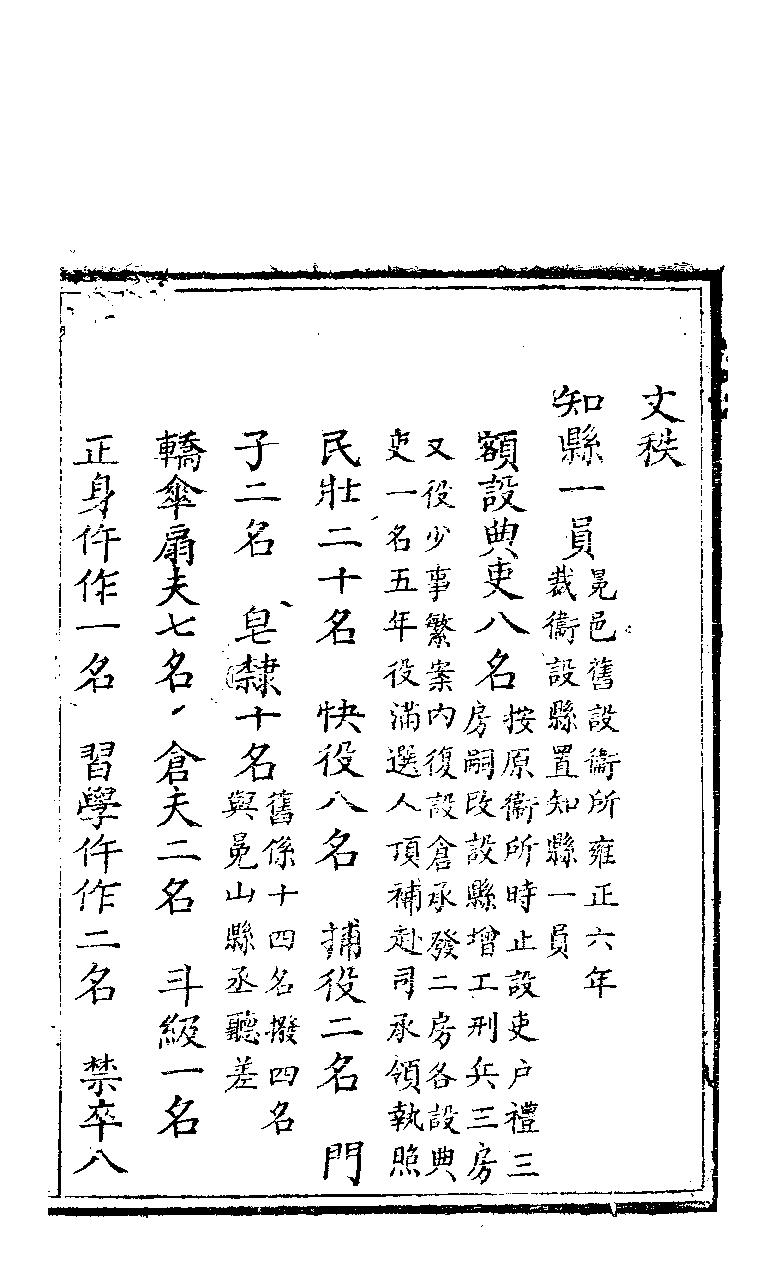 文秩
知縣一員冕邑舊設衞所雍正六年
裁衞設縣置知縣一員
額設典吏八名按原衞所時止設吏户禮三
房嗣改設縣增工刑兵三房
又役少事繁案內復設倉承發二房各設典
吏一名五年役滿選人頂補赴司承領執照
民壯二十名　快役八名　捕役二名　門
子二名　皂隸十名舊係十四名撥四名
與冕山縣丞聽差
轎傘扇夫七名　倉夫二名　斗級一名
正身仵作一名　習學仵作二名　禁卒八